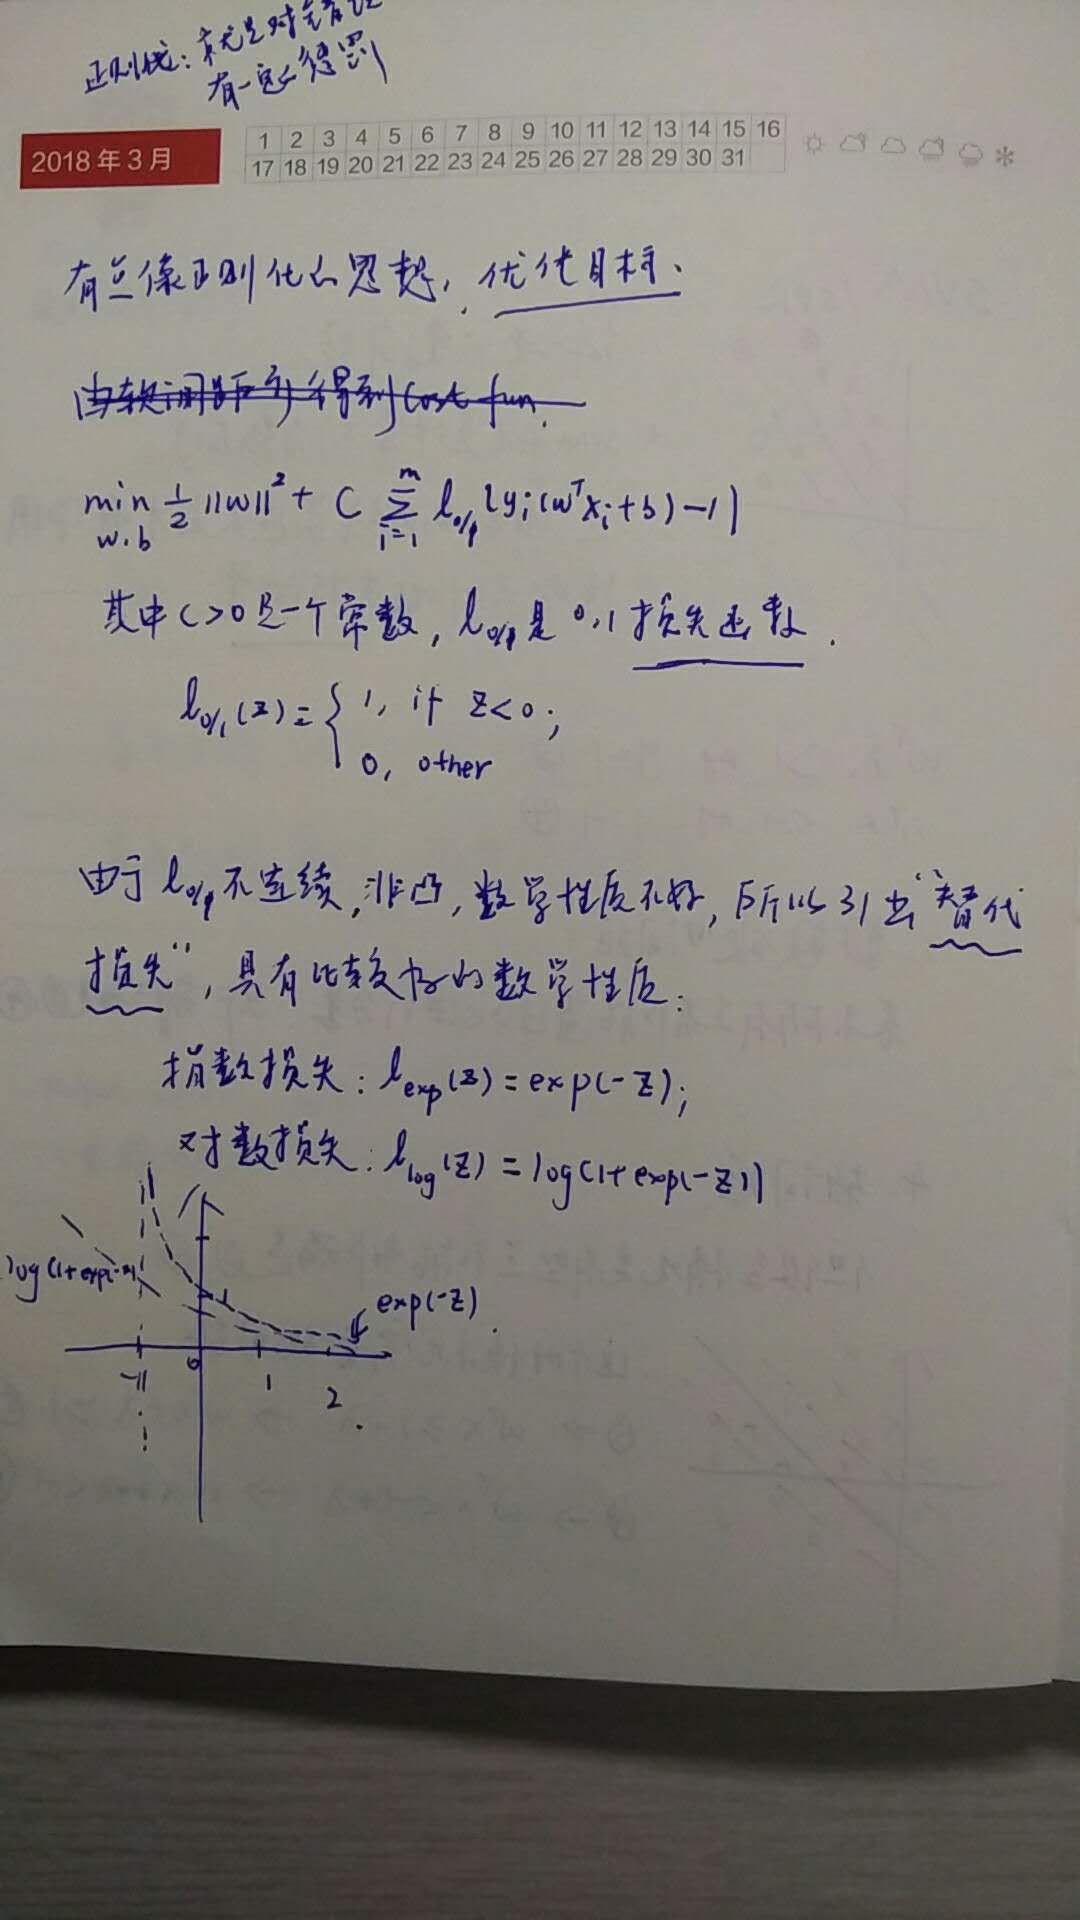 正则化：就是对错误
有一定的惩罚
2018年3月
1 2 3 4 5 6 7 8 9 10 11 12 13 14 15 16
17 18 19 20 21 22 23 24 25 26 27 28 29 30 31
有点像正则化的思想，优化目标、
由软间隔 得到cost fun.
min w.b 1/2 ||w||² + C Σ i=1 m l0/1(yi(wᵀxi+b)-1)
其中C>0是一个常数, l0/1是0,1损失函数.
l0/1(z)={ 1, if z<0;
0, other
由于l0/1不连续,非凸,数学性质不好,所以引出"替代
损失",具有比较好的数学性质:
指数损失: lexp(z)=exp(-z);
对数损失: llog(z)=log(1+exp(-z))
log(1+exp(-z))
1
exp(-z)
-1 0 1 2